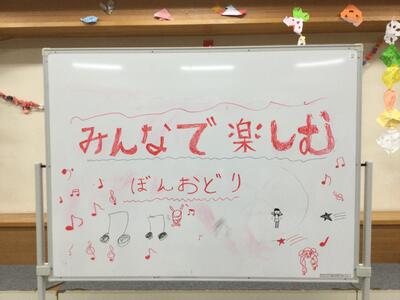 みんなで楽しむ
ぼんおどり